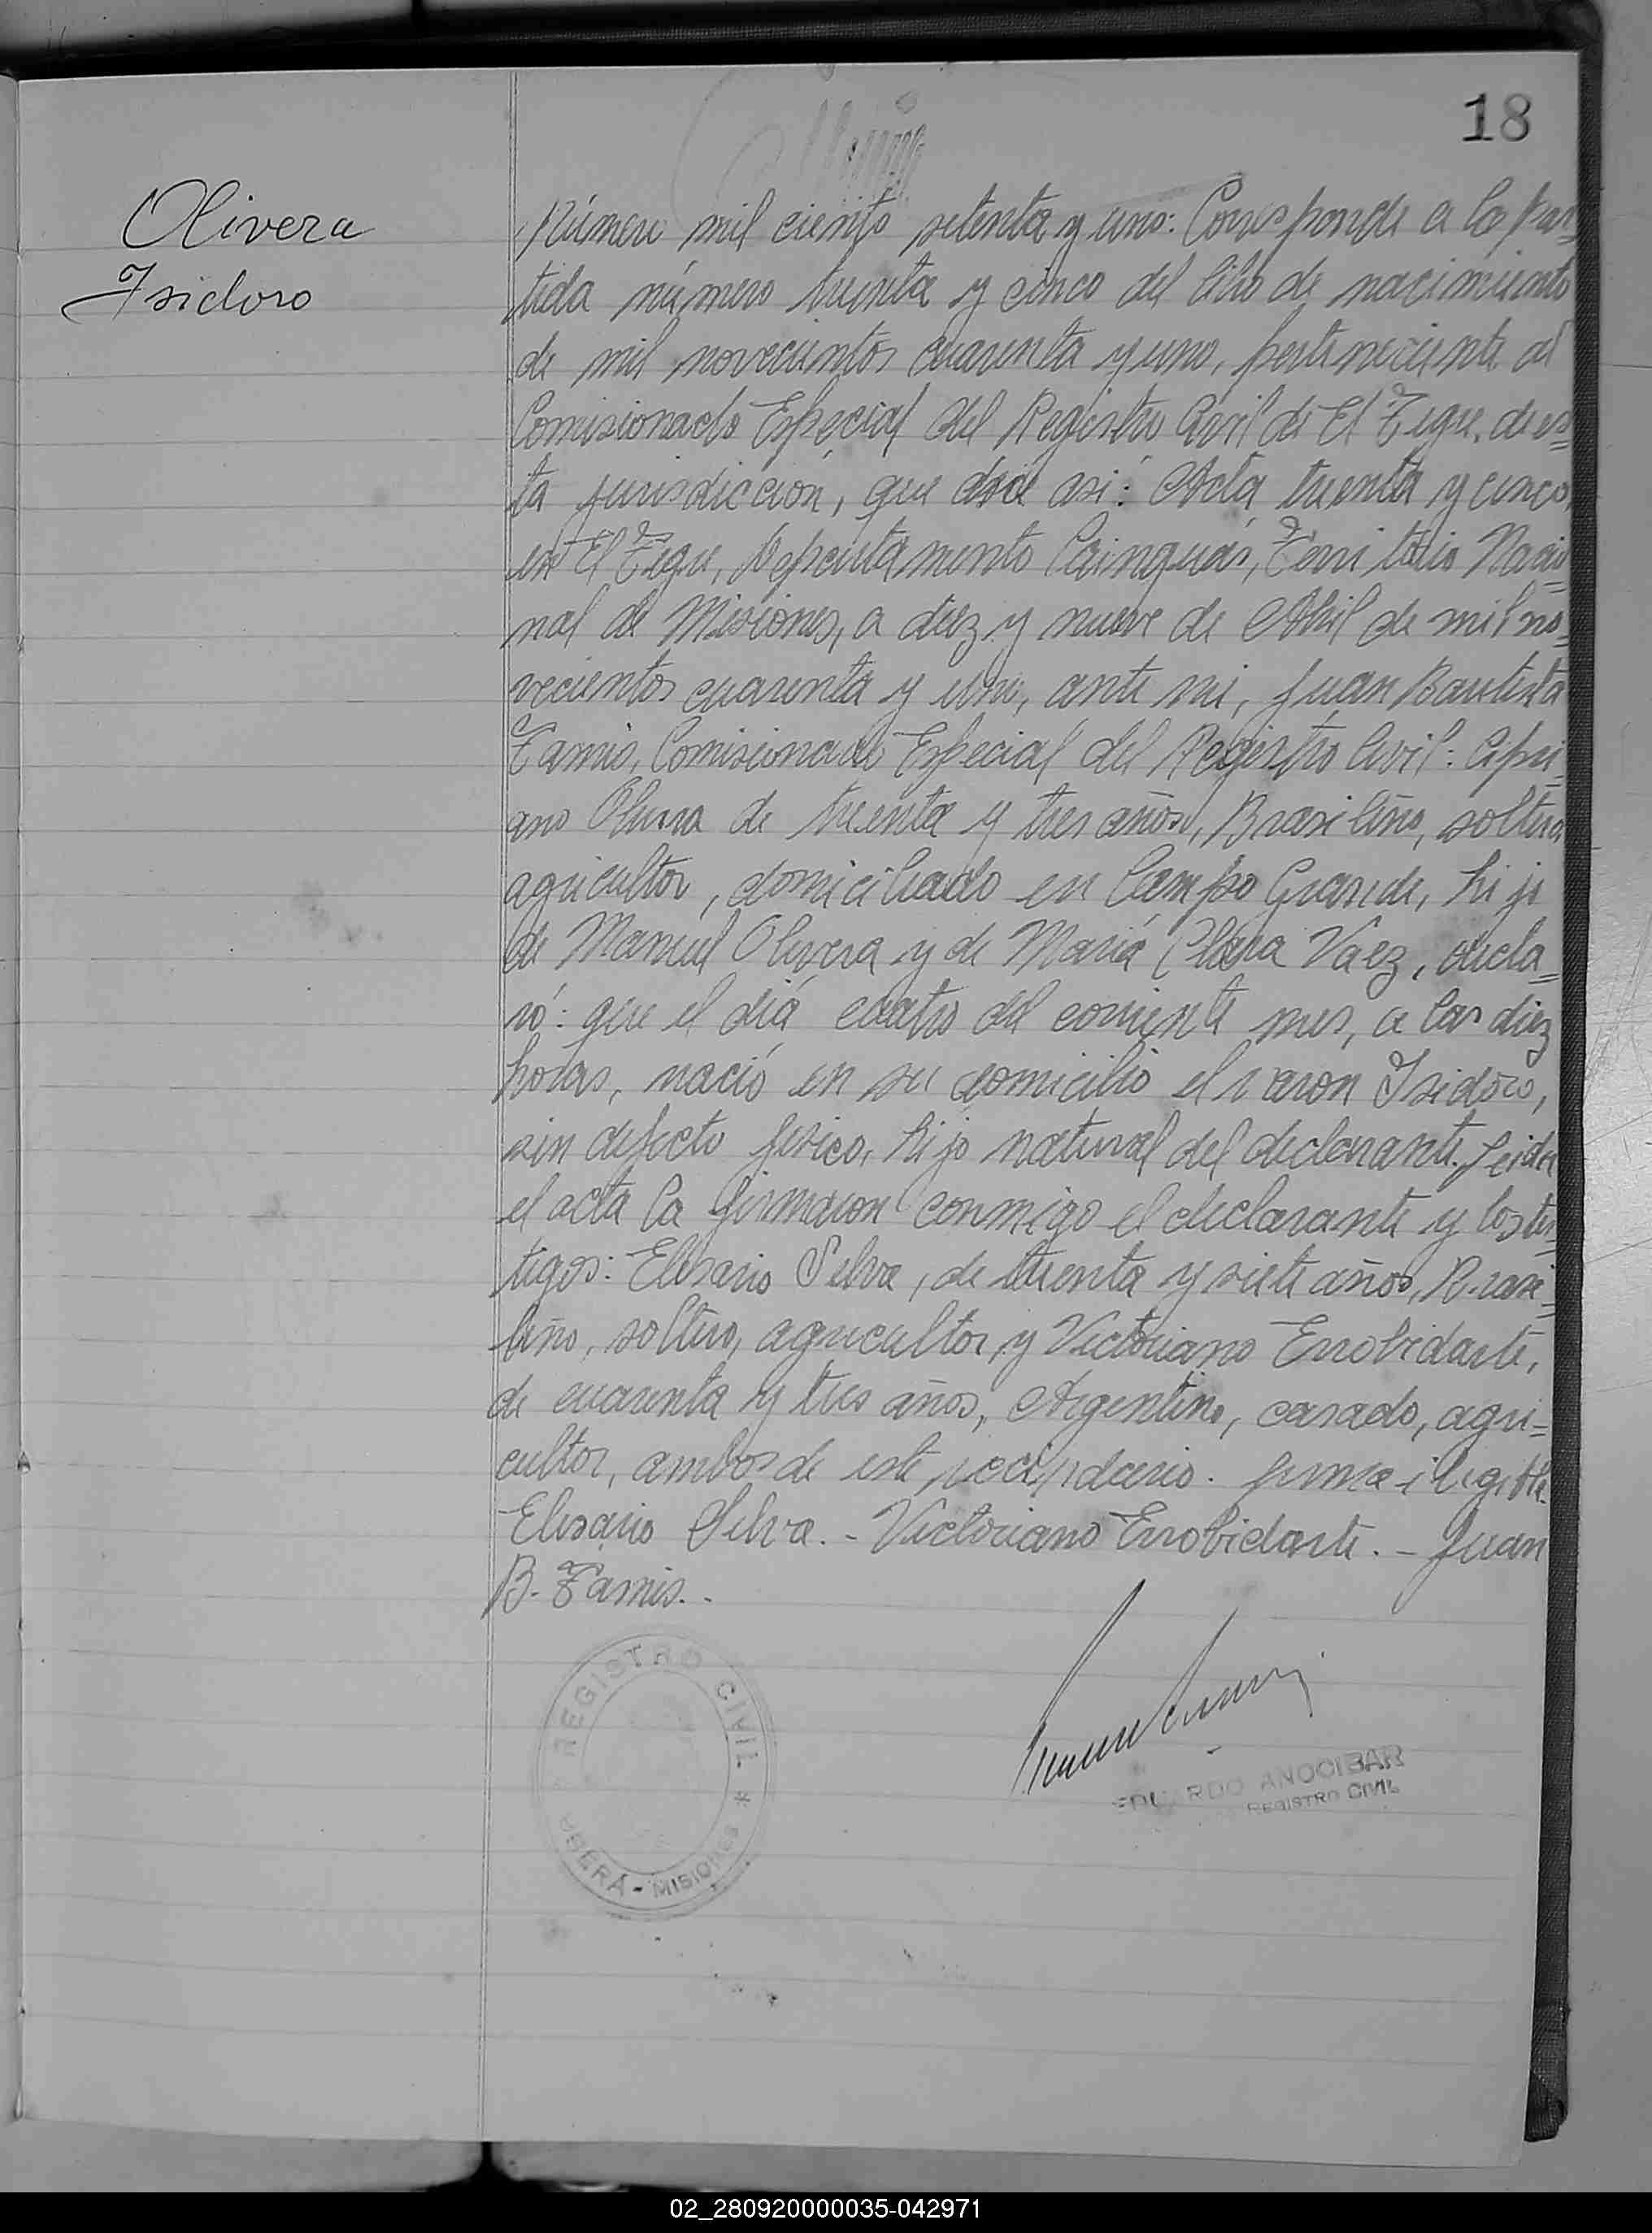 18
Olivera
Isidoro
Número mil ciento setenta y uno: Corresponde a la par-
tida número treinta y cinco del libro de nacimiento
de mil novecientos cuarenta y uno, perteneciente al
Comisionado Especial del Registro Civil de El Tigre, de es=
ta jurisdicción, que dice así: Acta treinta y cinco
en El Tigre, Departamento Cainguás, Territorio Nacio=
nal de Misiones, a diez y nueve de Abril de mil no=
vecientos cuarenta y uno, ante mi, Juan Bautista
Famis, Comisionado Especial del Registro Civil: Cipri-
ano Olivera de treinta y tres años, Brasileño, soltero
agricultor, domiciliado en Campo Grande, hijo
de Manuel Olivera y de María Clara Vaez, decla=
ró: que el día cuatro del corriente mes, a las diez
horas, nació en su domicilio el varon Isidoro,
sin defecto fisico, hijo natural del declarante. Leida
el acta la firmaron conmigo el declarante y los tes=
tigos: Elisario Silva, de treinta y siete años, Brasi=
leño, soltero, agricultor y Victoriano Errobidarte,
de cuarenta y tres años, Argentino, casado, agri=
cultor, ambos de este vecindario. firma ilegible.
Elisario Silva. - Victoriano Errobidarte. - Juan
B. Famis. -
REGISTRO CIVIL *
OBERÁ - MISIONES
EDUARDO ANOCIBAR
REGISTRO CIVIL
02_280920000035-042971